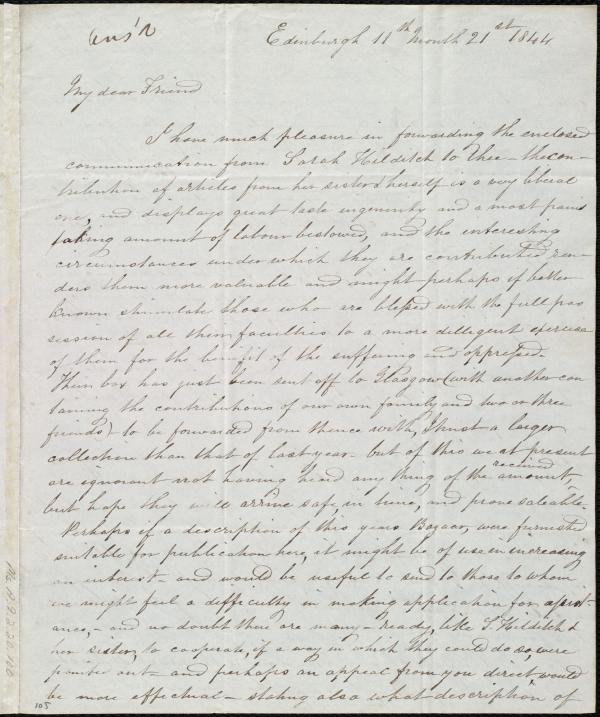 Ans'd
Edinburgh 11th Month 21st 1844
My dear Friend
I have much pleasure in forwarding the enclosed
communication from Sarah Hilditch to thee - the con-
tribution of articles from her sister & herself is a very liberal
one, and displays great taste ingenuity and a most pains
taking amount of labour bestowed, and the interesting
circumstances under which they are contributed ren-
ders them more valuable and might perhaps if better
known stimulate those who are blessed with the full pos
session of all their faculties to a more dilligent exercise
of them for the benefit of the suffering and oppressed.
Their box has just been sent off to Glasgow (with another con
taining the contributions of our own family and two or three
friends) to be forwarded from thence with, I trust a larger
collection than that of last year - but of this we at present
are ignorant not having heard any thing of the amount received,
but hope they will arrive safe, in time, and prove saleable.
Perhaps if a description of this years Bazaar, were furnished
suitable for publication here, it might be of use in increasing
an interest - and would be useful to send to those to whom
we might feel a difficulty in making application for assist-
ance, - and no doubt there are many - ready, like S Hilditch &
her sister, to cooperate, if a way in which they could do so, were
pointed out - and perhaps an appeal from you direct, would
be more effectual - stating also what description of
105